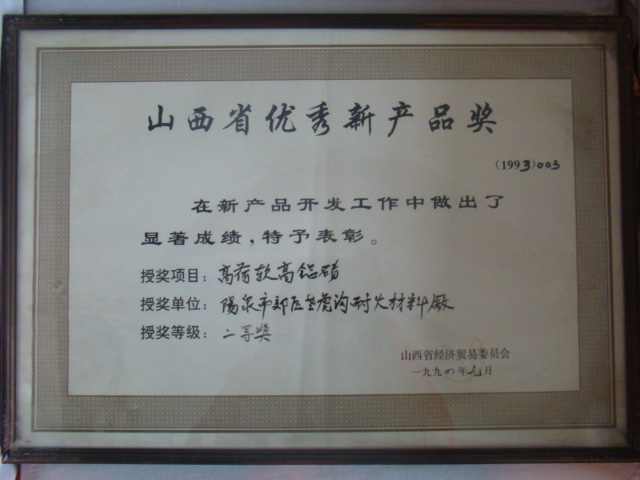 山西省优秀新产品奖
(1993)003
在新产品开发工作中做出了
显著成绩,特予表彰。
授奖项目：高荷软高铝砖
授奖单位：陽泉市郊区白虎沟耐火材料厰
授奖等级：二等奖
山西省经济贸易委员会
一九九四年元月